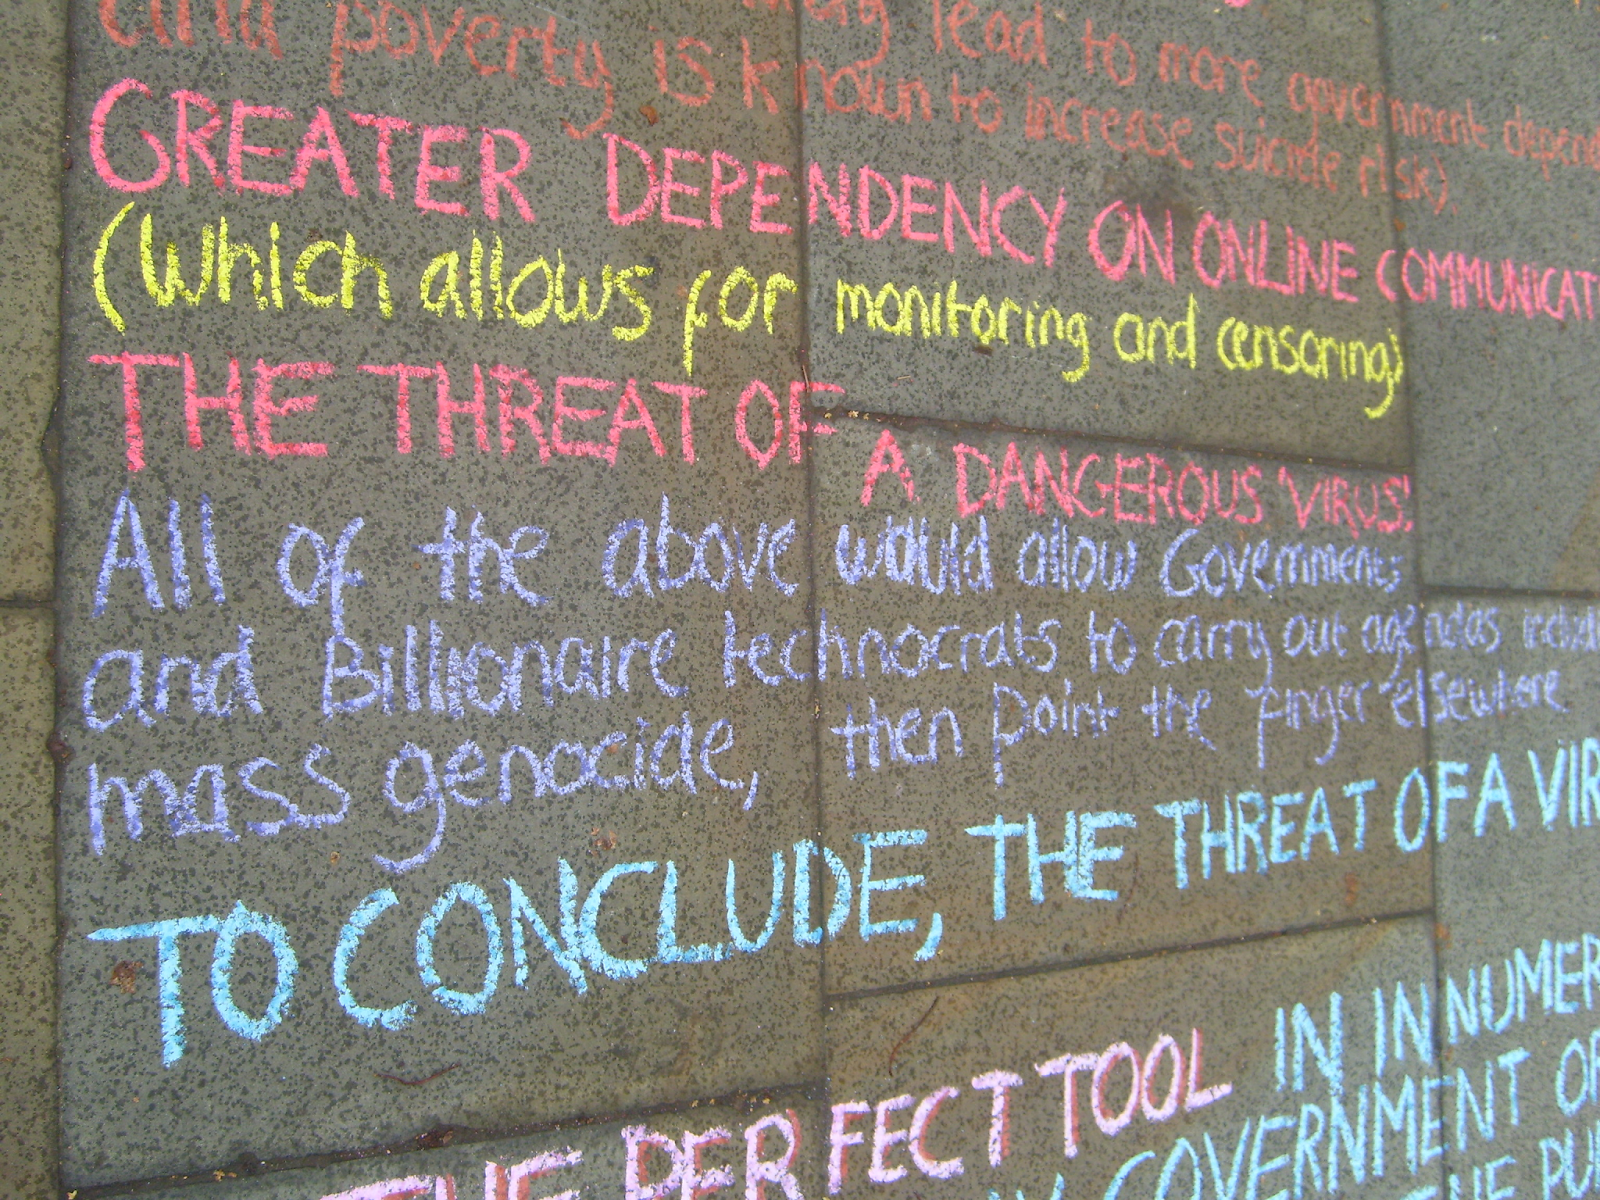 may lead to more government depend
and poverty is known to increase suicide risk).
GREATER DEPENDENCY ON ONLINE COMMUNICATI
(Which allows for monitoring and censoring)
THE THREAT OF A DANGEROUS 'VIRUS'.
All of the above would allow Governments
and Billionaire technocrats to carry out agendas includ
mass genocide, then point the finger elsewhere
TO CONCLUDE, THE THREAT OF A VIR
THE PERFECT TOOL IN INNUMER
GOVERNMENT OR
THE PU